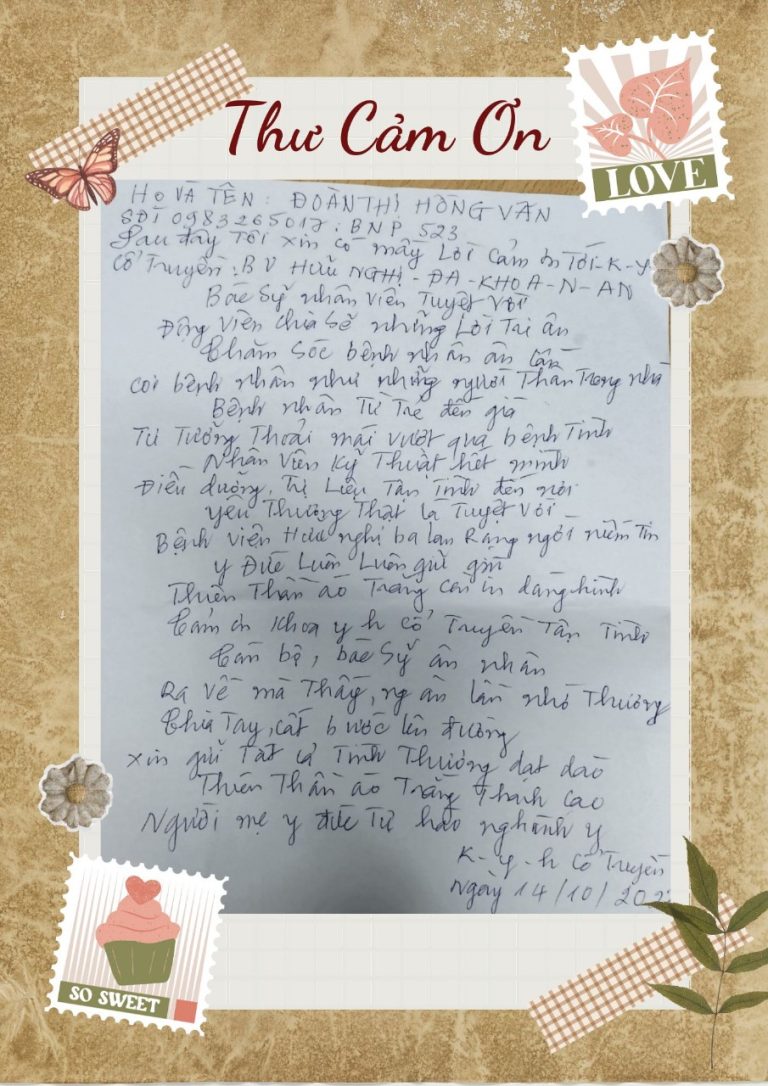 Thư Cảm Ơn
LOVE
Họ VÀ TÊN : ĐOÀN THỊ HỒNG VÂN
SĐT 0983265017 . BNP 523
Sau đây Tôi xin có mấy Lời Cảm ơn Tới - K - Y
Cổ Truyền . BV HỮU NGHỊ - ĐA - KHOA - N - AN
Bác Sỹ nhân viên Tuyệt vời
Động Viên chia Sẻ những Lời Tri ân
Chăm Sóc bệnh nhân ân cần
coi bệnh nhân như những người Thân Trong nhà
Bệnh nhân Từ Trẻ đến già
Tư Tưởng Thoải mái vượt qua bệnh Tình
Nhân Viên Kỹ Thuật hết mình
Điều dưỡng, Trị Liệu Tận Tình đến nơi
yêu Thương Thật Là Tuyệt Vời
Bệnh viện Hữu nghị ba lan Rạng ngời niềm Tin
y Đức Luôn Luôn giữ gìn
Thiên Thần áo Trắng còn in dáng hình
Cảm ơn Khoa y h Cổ Truyền Tận Tình
Cán bộ, bác Sỹ ân nhân
Ra Về mà Thấy, ng ân lần nhớ Thương
Chia Tay, cất bước lên đường
xin gửi Tất cả Tình Thương dạt dào
Thiên Thần áo Trắng Thanh Cao
Người mẹ y đức Tự hào nghành y
K - y - h Cổ Truyền
Ngày 14/10/202
SO SWEET